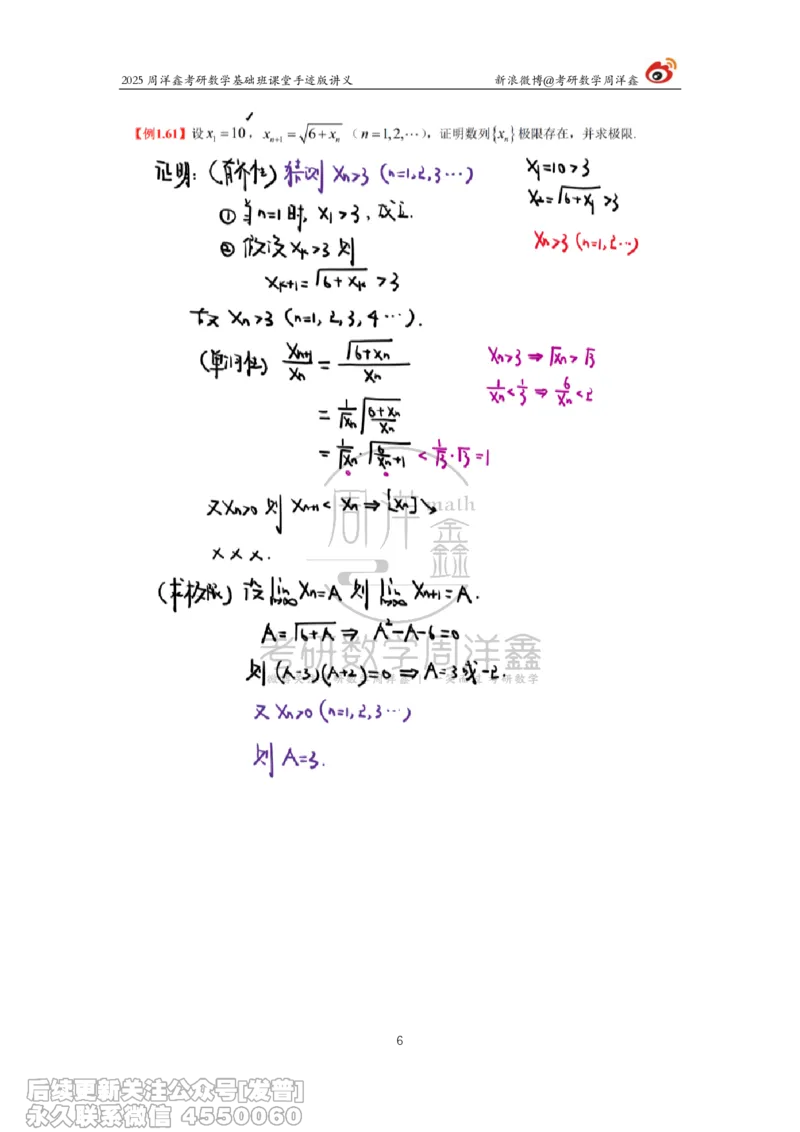 2025 周洋鑫考研数学基础班课堂手迹版讲义 新浪微博@考研数学周洋鑫
【例1.61】设 x₁ = 10，xₙ₊₁ = √(6 + xₙ) （n = 1,2,⋯），证明数列{xₙ}极限存在，并求极限.
证明：(有界性) 猜测 Xₙ>3 (n=1,2,3⋯)
X₁=10>3
X₂=√(6+X₁) >3
① 当n=1时, X₁>3, 成立.
② 假设 Xₖ>3 则
Xₙ>3 (n=1,2⋯)
Xₖ₊₁=√(6+Xₖ) >3
故 Xₙ>3 (n=1, 2, 3, 4⋯).
(单调性) Xₙ₊₁/Xₙ = √(6+Xₙ)/Xₙ
Xₙ>3 ⇒ √Xₙ > √3
1/Xₙ < 1/3 ⇒ 6/Xₙ < 2
= 1/√Xₙ √((6+Xₙ)/Xₙ)
= 1/√Xₙ · √(6/Xₙ +1) < 1/√3 · √3 = 1
又Xₙ>0 则 Xₙ₊₁< Xₙ ⇒ {Xₙ}↘
× × ×.
(求极限) 设 lim n→∞ Xₙ=A 则 lim n→∞ Xₙ₊₁=A.
A=√(6+A) ⇒ A²-A-6=0
则 (A-3)(A+2)=0 ⇒ A=3或-2.
又 Xₙ>0 (n=1,2,3⋯)
则 A=3.
周洋鑫math
考研数学周洋鑫
6
后续更新关注公众号[发普]
永久联系微信 4550060